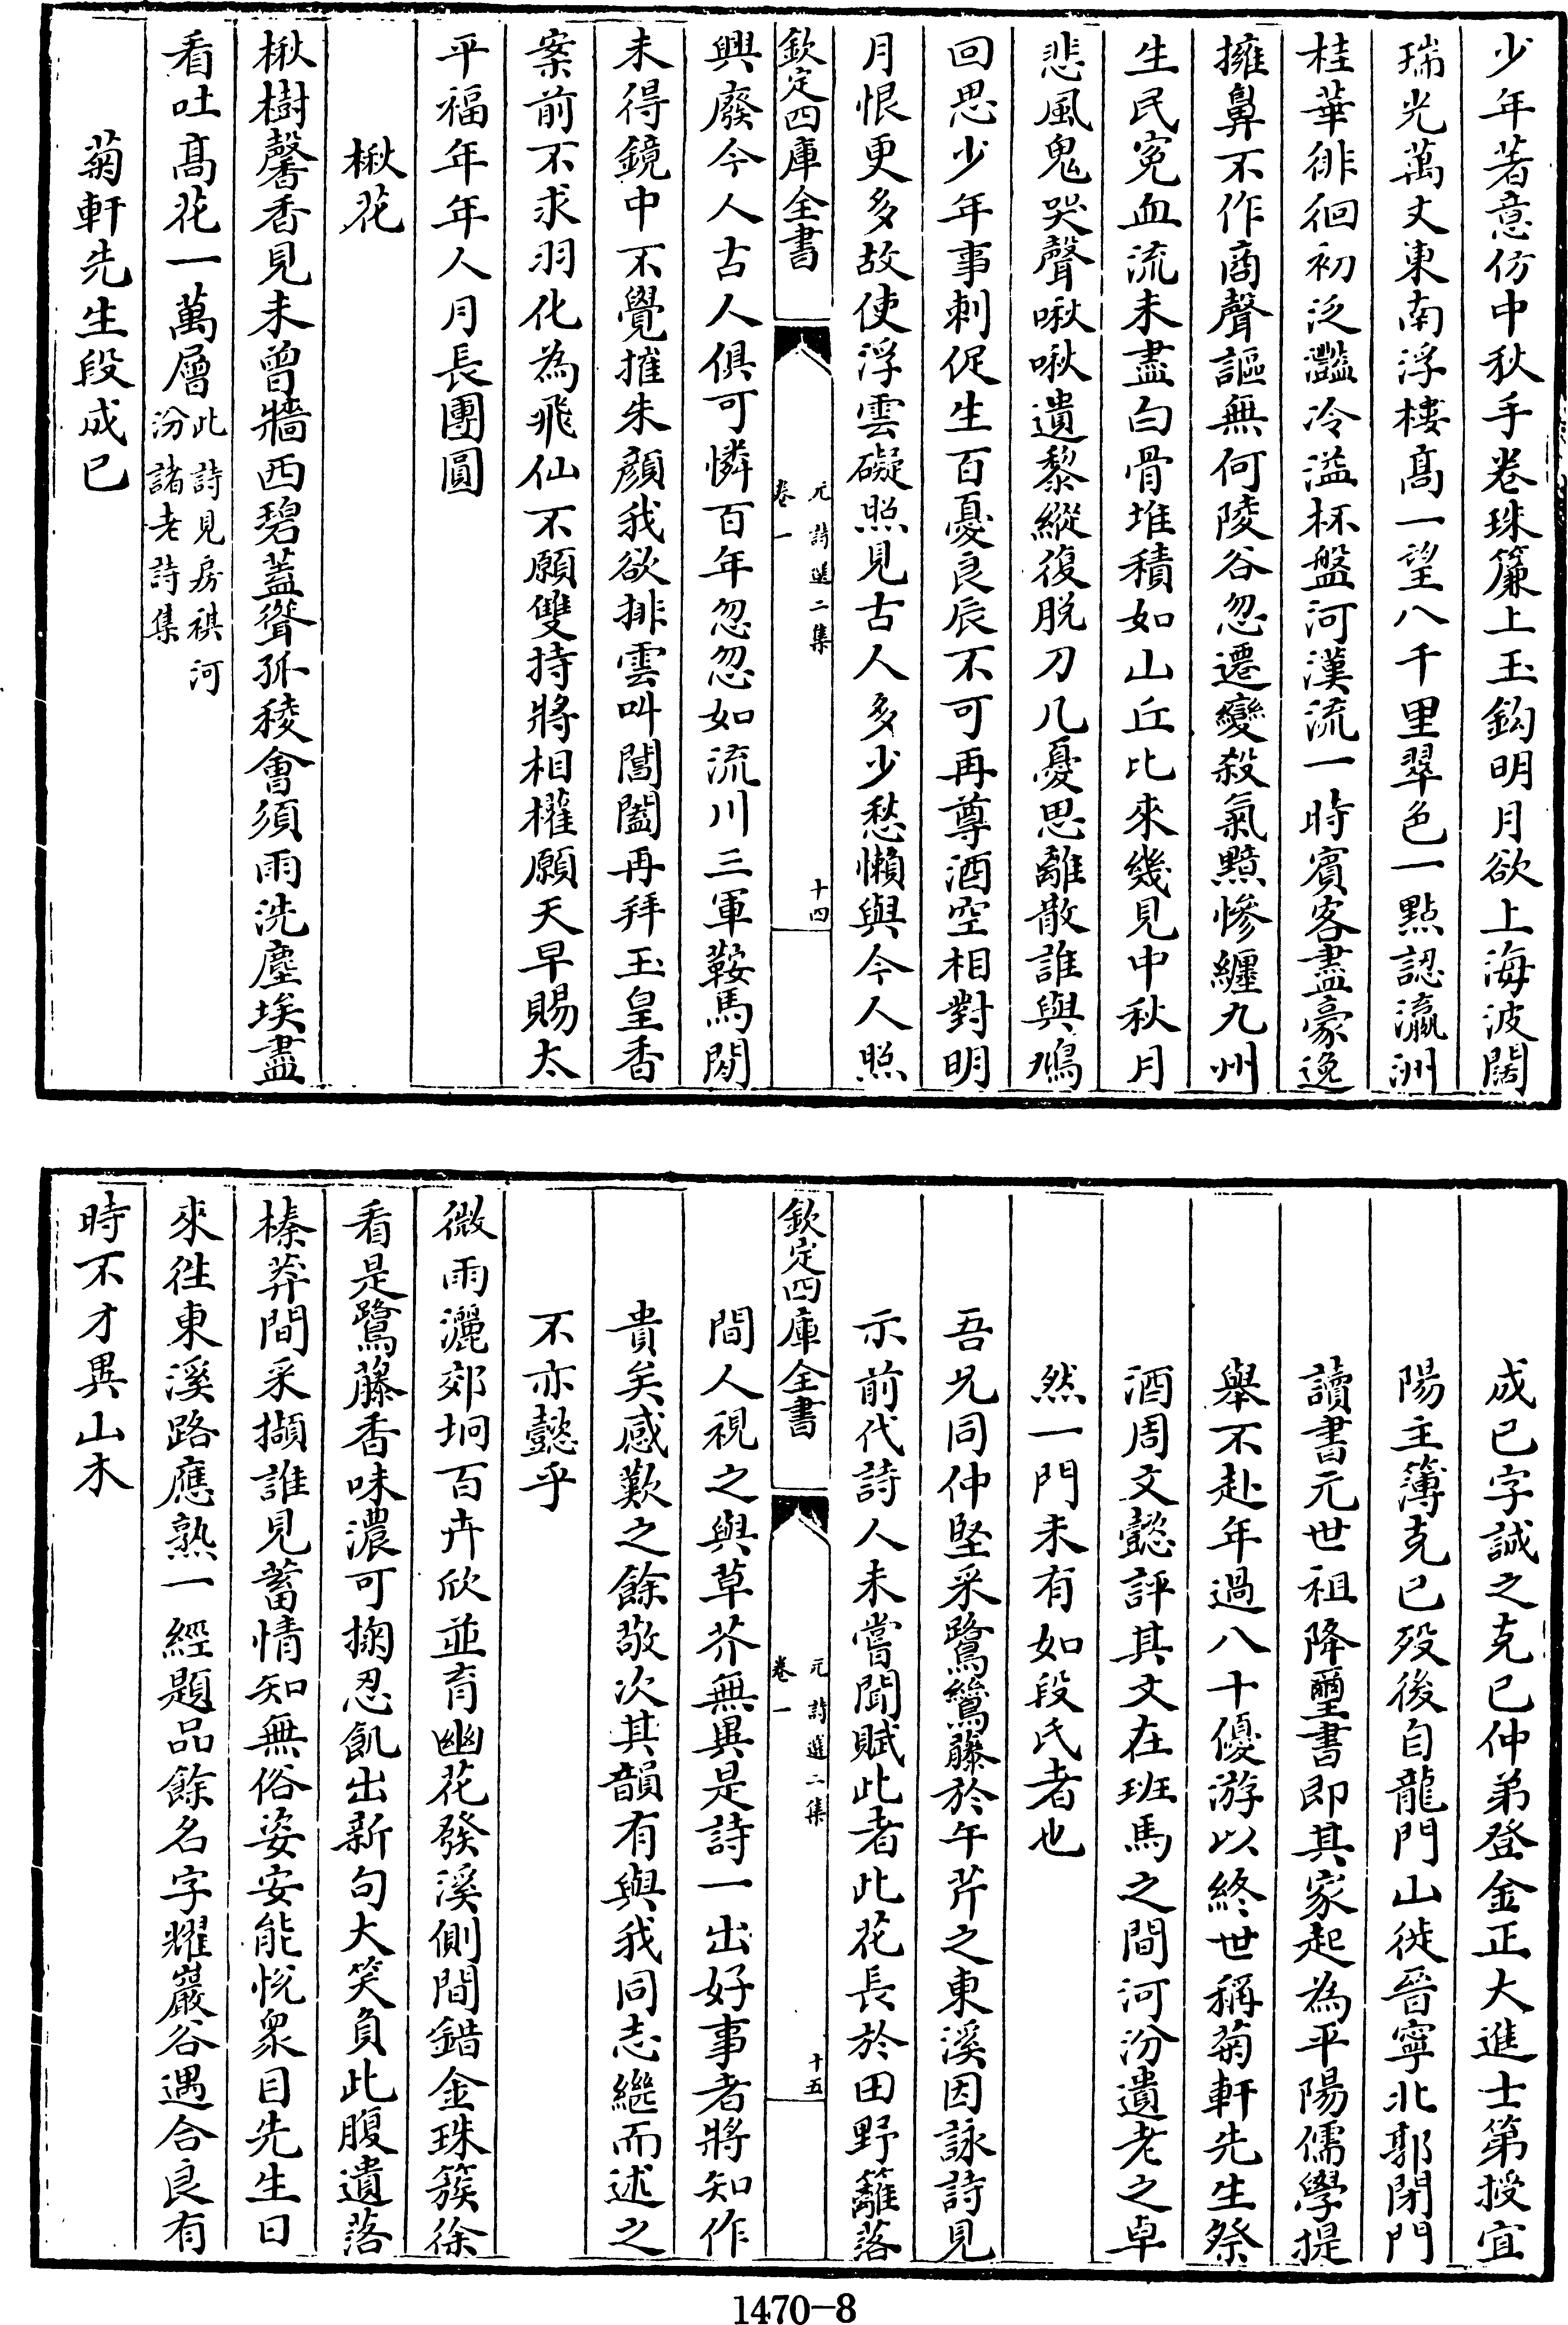 少年著意仿中秋手卷珠簾上玉鈎明月欲上海波闊
瑞光萬丈東南浮樓髙一望八千里翠色一點認瀛洲
桂華徘徊初泛灩冷溢杯盤河漢流一時賓客盡豪逸
擁鼻不作商聲謳無何陵谷忽遷變殺氣黯慘纏九州
生民寃血流未盡白骨堆積如山丘比來幾見中秋月
悲風鬼哭聲啾啾遺黎縱復脱刀几憂思離散誰與鳩
回思少年事刺促生百憂良辰不可再尊酒空相對明
月恨更多故使浮雲礙照見古人多少愁懶與今人照
欽定四庫全書
元詩選二集
卷一
十四
興廢今人古人俱可憐百年忽忽如流川三軍鞍馬閒
未得鏡中不覺摧朱顔我欲排雲叫閶闔再拜玉皇香
案前不求羽化為飛仙不願雙持將相權願天早賜太
平福年年人月長團圓
楸花
楸樹馨香見未曾牆西碧蓋聳孤稜會須雨洗塵埃盡
看吐髙花一萬層
此詩見房祺河
汾諸老詩集
菊軒先生段成已
成已字誠之克已仲弟登金正大進士第授宜
陽主簿克已殁後自龍門山徙晉寧北郭閉門
讀書元世祖降璽書即其家起為平陽儒學提
舉不赴年過八十優游以終世稱菊軒先生祭
酒周文懿評其文在班馬之間河汾遺老之卓
然一門未有如段氏者也
吾兄同仲堅采鷺鷥藤於午芹之東溪因詠詩見
示前代詩人未嘗聞賦此者此花長於田野籬落
欽定四庫全書
元詩選二集
卷一
十五
間人視之與草芥無異是詩一出好事者將知作
貴矣感歎之餘敬次其韻有與我同志繼而述之
不亦懿乎
微雨灑郊坰百卉欣並育幽花發溪側間錯金珠簇徐
看是鷺藤香味濃可掬忍飢出新句大笑負此腹遺落
榛莽間采擷誰見蓄情知無俗姿安能悅衆目先生日
來徃東溪路應熟一經題品餘名字耀巖谷遇合良有
時不才異山木
1470-8